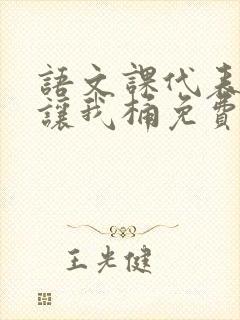 語文課代表
讓我桶免費
王光健